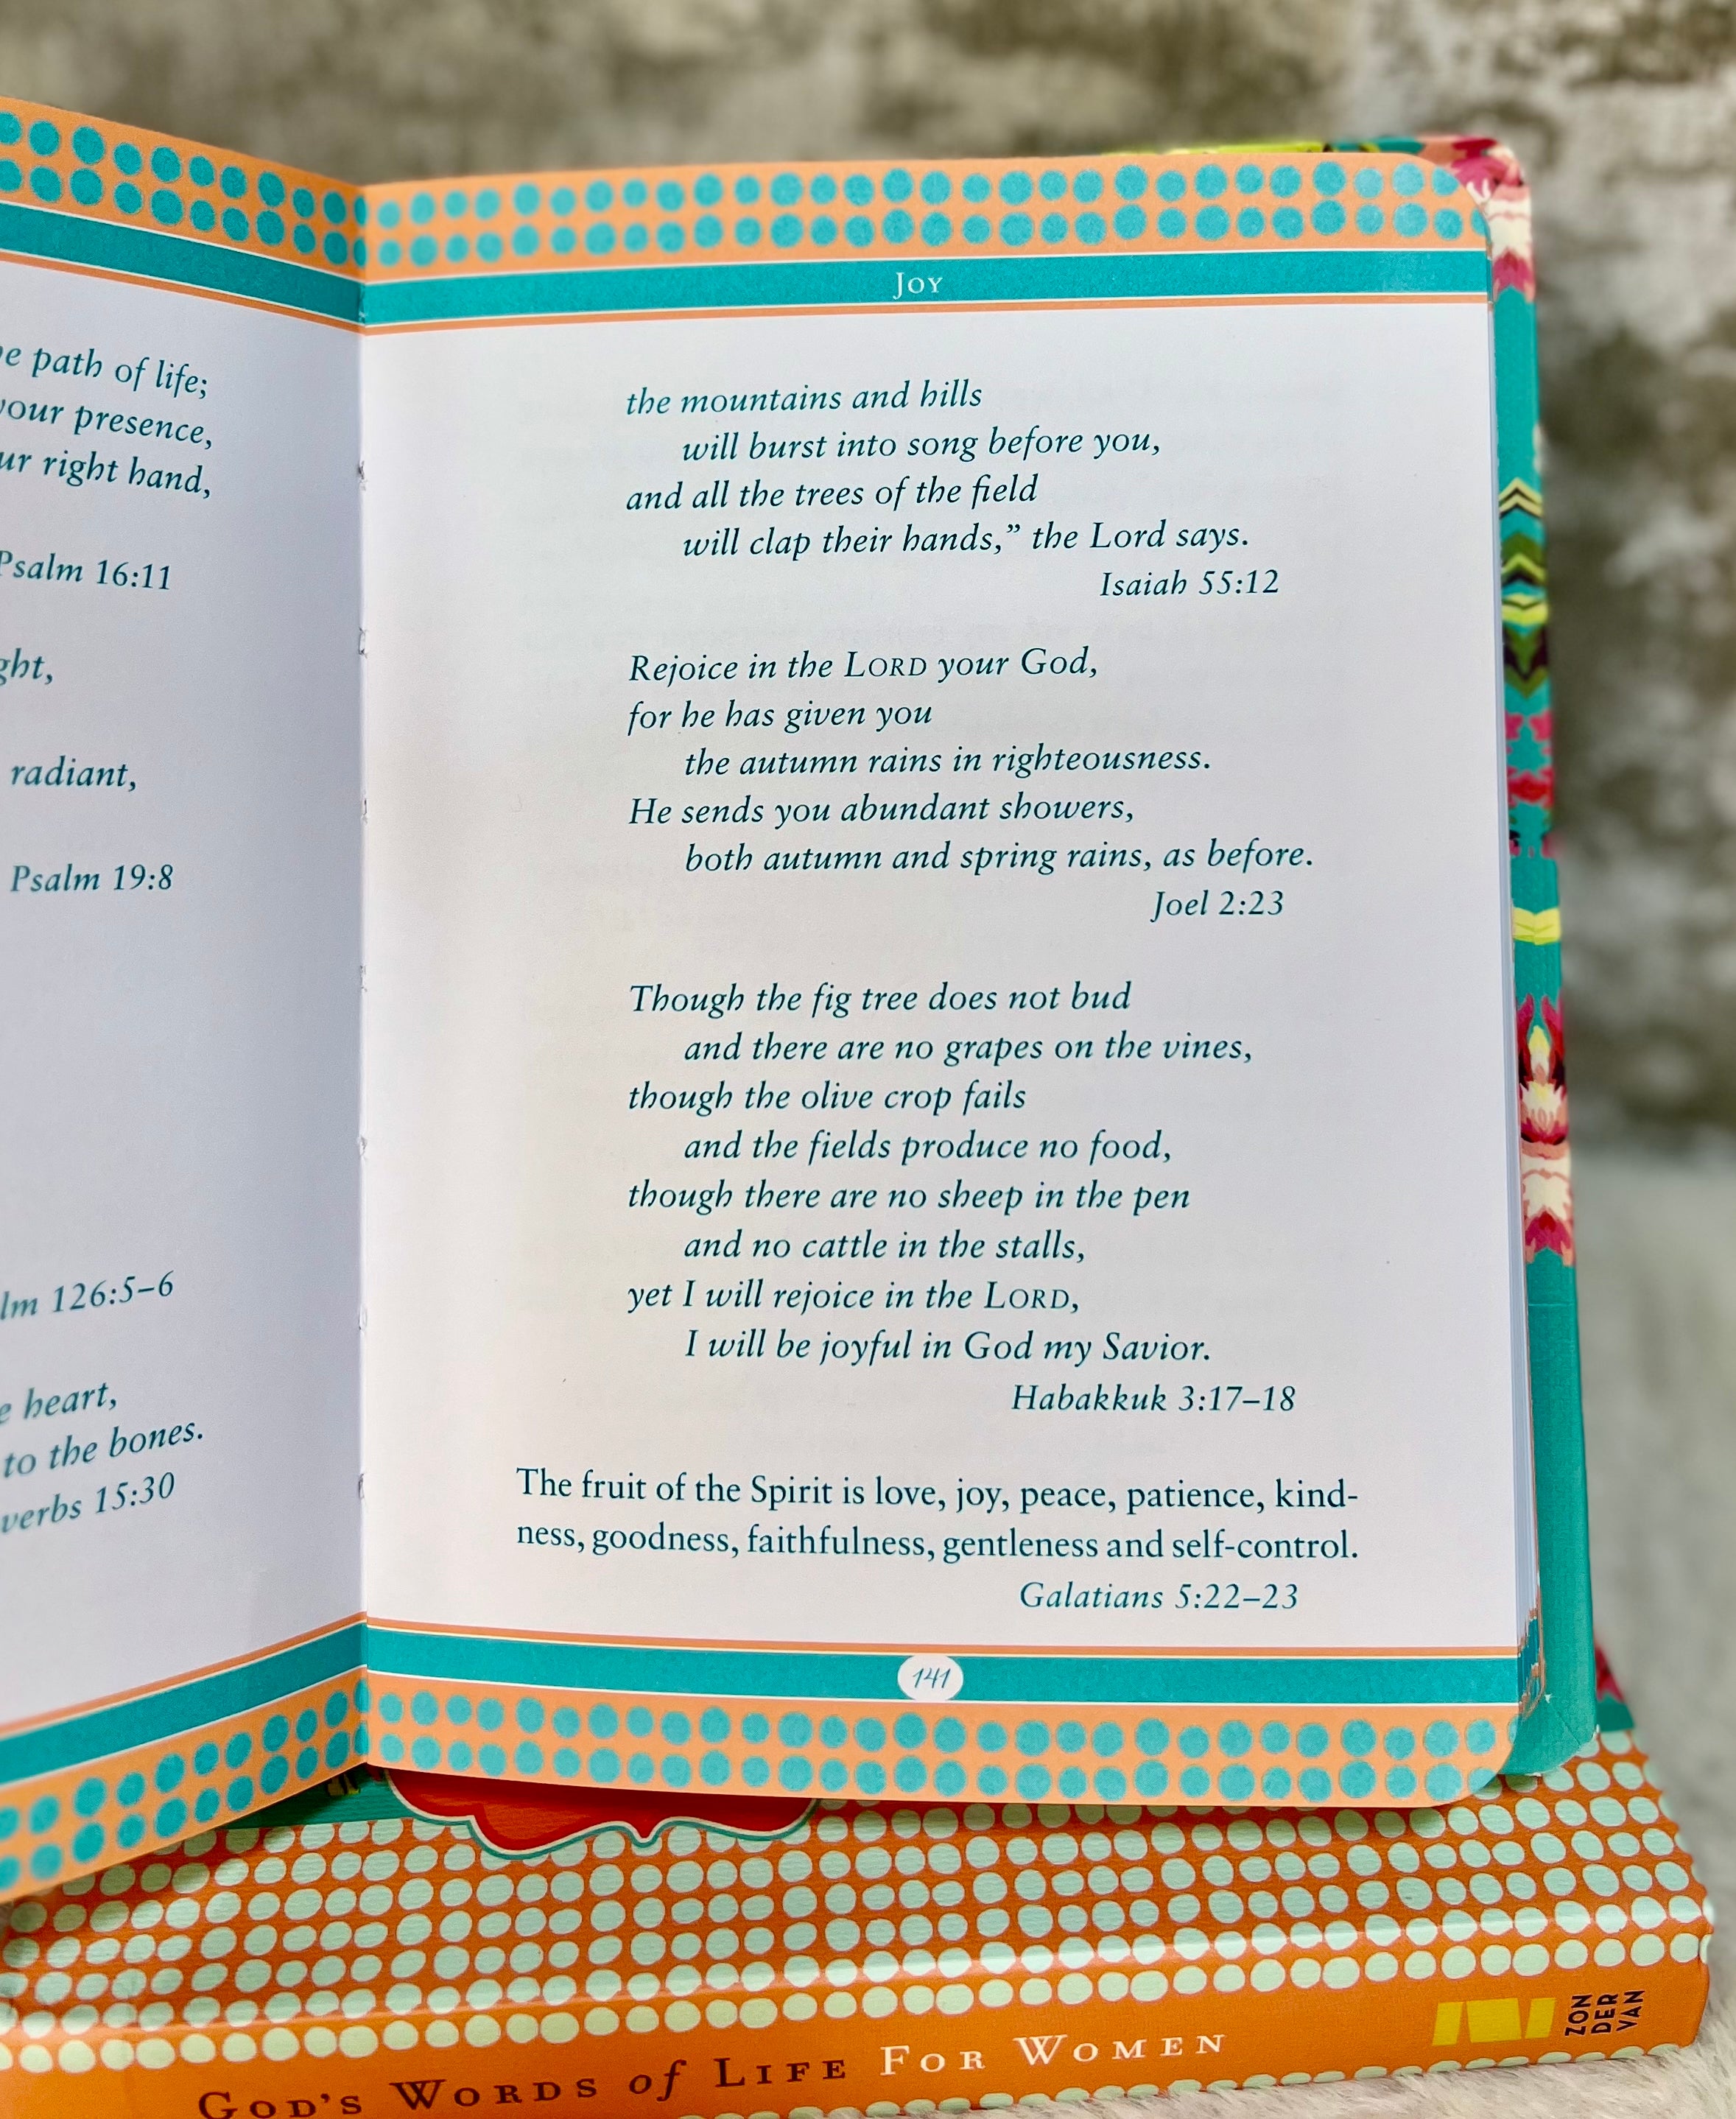 path of life;
your presence,
right hand,
Psalm 16:11
radiant,
Psalm 19:8
126:5–6
heart,
to the bones.
15:30
Joy
the mountains and hills
will burst into song before you,
and all the trees of the field
will clap their hands,” the Lord says.
Isaiah 55:12
Rejoice in the LORD your God,
for he has given you
the autumn rains in righteousness.
He sends you abundant showers,
both autumn and spring rains, as before.
Joel 2:23
Though the fig tree does not bud
and there are no grapes on the vines,
though the olive crop fails
and the fields produce no food,
though there are no sheep in the pen
and no cattle in the stalls,
yet I will rejoice in the LORD,
I will be joyful in God my Savior.
Habakkuk 3:17–18
The fruit of the Spirit is love, joy, peace, patience, kind-
ness, goodness, faithfulness, gentleness and self-control.
Galatians 5:22–23
141
GOD'S WORDS of LIFE FOR WOMEN
ZON
DER
VAN